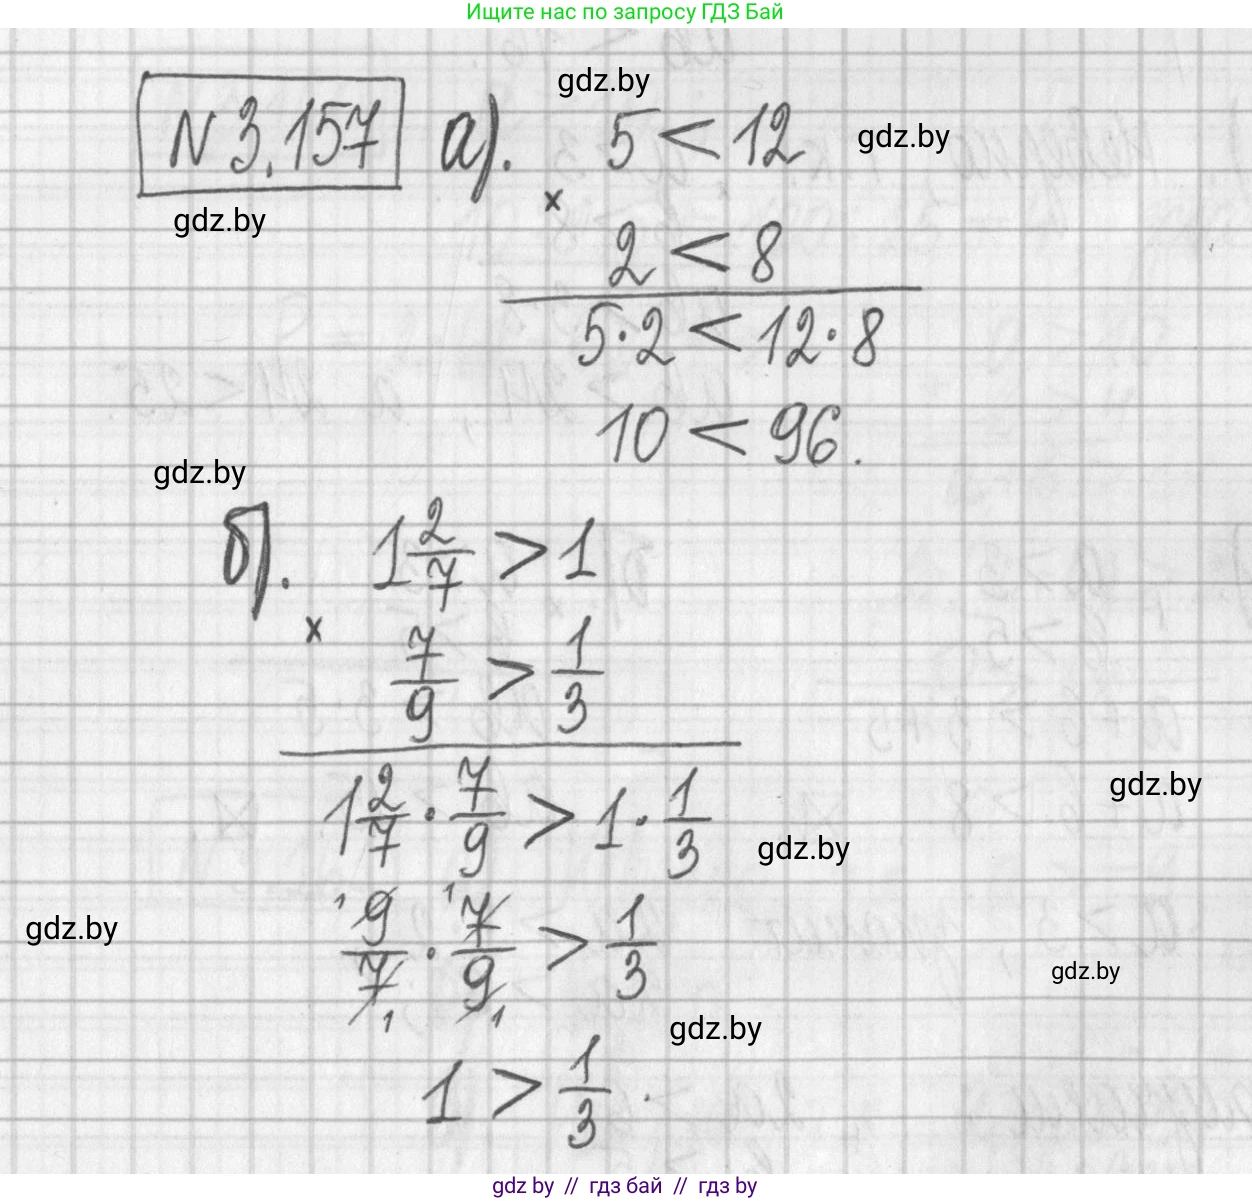 Ищите нас по запросу ГДЗ Бай
gdz.by
N 3.157 а). 5 < 12
gdz.by
×
gdz.by
2 < 8
5·2 < 12·8
10 < 96.
gdz.by
б). 1 2/7 > 1
×
7/9 > 1/3
1 2/7 · 7/9 > 1 · 1/3
gdz.by
gdz.by
1 9/7 1 · 1 7/9 1 > 1/3
gdz.by
gdz.by
gdz.by
1 > 1/3.
gdz by // гдз бай // гдз by